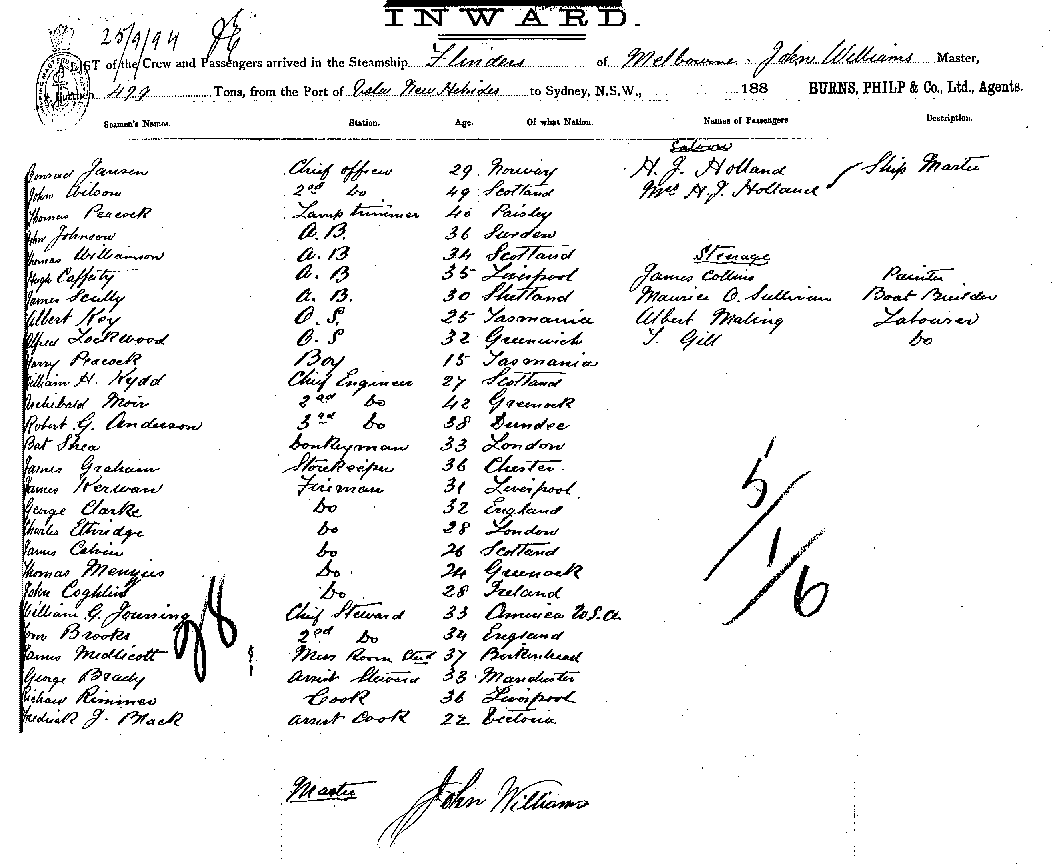 INWARD.
25/9/94
LIST of the Crew and Passengers arrived in the Steamship Flinders of Melbourne. John Williams Master,
499 Tons, from the Port of New Hebrides to Sydney, N.S.W., 188 BURNS, PHILP & Co., Ltd., Agents.
Seamen's Names. Station. Age. Of what Nation. Names of Passengers Description.
Saloon
Conrad Jansen Chief officer 29 Norway H. J. Holland Ship Master
John Wilson 2nd Do 49 Scotland Mrs H. J. Holland
Thomas Peacock Lamp trimmer 40 Paisley
John Johnson A. B. 36 Sweden
Thomas Williamson A. B 34 Scotland Steerage
Hugh Cafferty A. B 35 Liverpool James Collins Painter
James Scully A. B. 30 Shetland Maurice O. Sullivan Boat Builder
Albert Koy O. S. 25 Tasmania Albert Maling Labourer
Alfred Lockwood O. S 32 Greenwich T. Gill Do
Harry Peacock Boy 15 Tasmania
William H. Kydd Chief Engineer 27 Scotland
Archibald Moir 2nd Do 42 Greenock
Robert G. Anderson 3rd Do 38 Dundee
Bat Shea Donkeyman 33 London
James Graham Storekeeper 36 Chester.
James Kerwan Fireman 31 Liverpool
George Clarke Do 32 England
Charles Ethridge Do 28 London
James Do 26 Scotland
Thomas Menzies Do. 24 Greenock
John Coghlin Do. 28 Ireland
William G. Chief Steward 33 America U.S.A.
Brooks 2nd Do 34 England
James Medlicott Mess Room Stwd 37 Birkenhead
George Brady Assist Steward 33 Manchester
Richard Rimmer Cook 36 Liverpool
Frederick J. Black Assist Cook 22 Victoria
28
5/1/6
Master John Williams